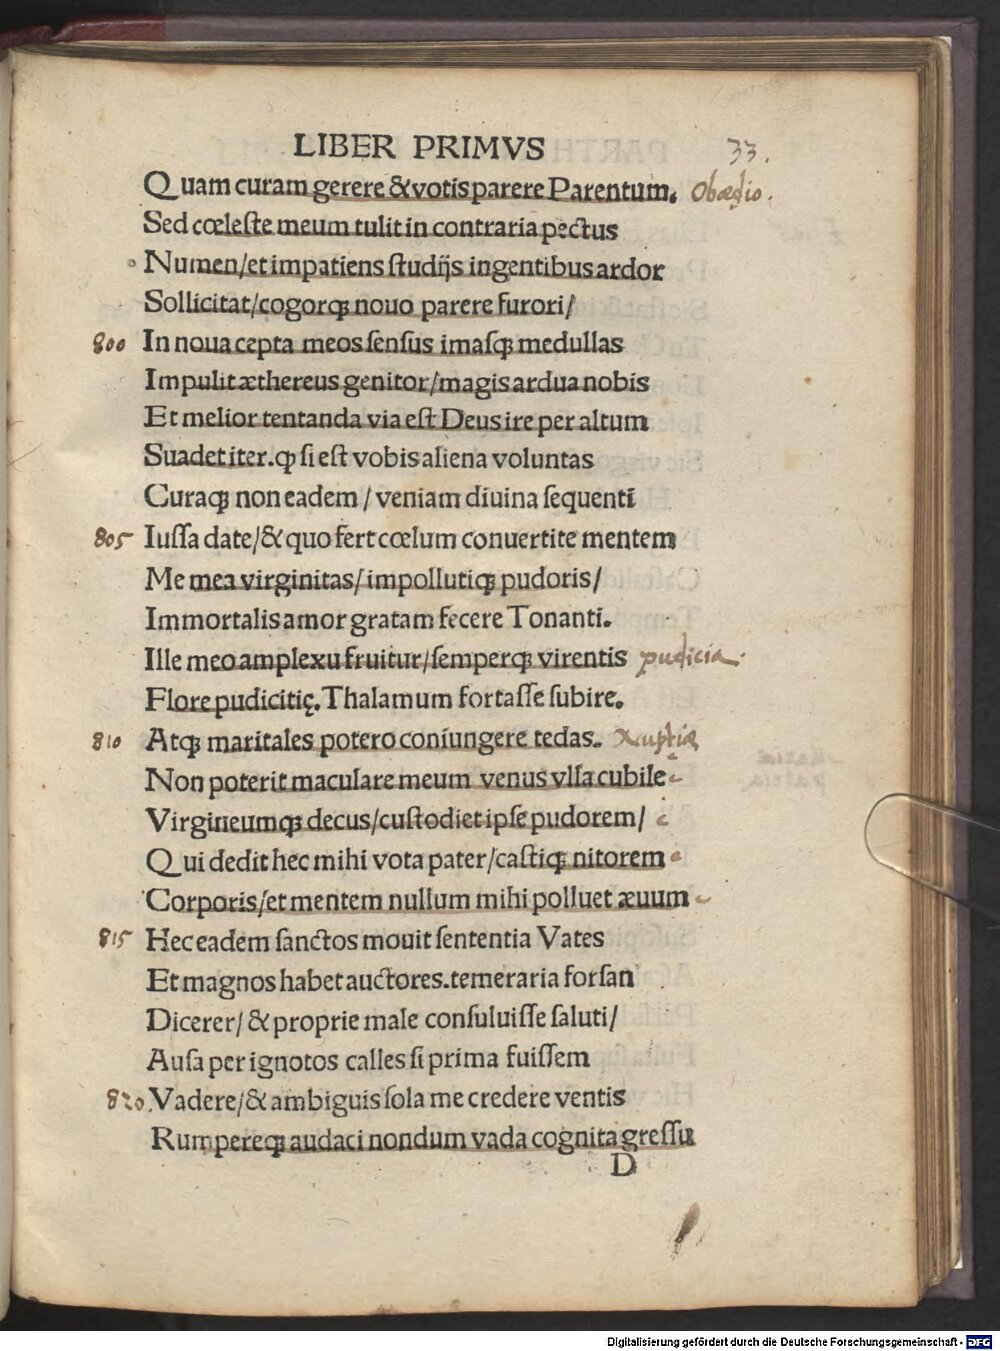 LIBER PRIMVS 33.
Quam curam gerere & votis parere Parentum. Obædio.
Sed cœleste meum tulit in contraria pectus
Numen/et impatiens studijs ingentibus ardor
Sollicitat/cogorqꝫ nouo parere furori/
800 In noua cepta meos sensus imasqꝫ medullas
Impulit æthereus genitor/magis ardua nobis
Et melior tentanda via est Deus ire per altum
Suadet iter. ꝙ si est vobis aliena voluntas
Curaqꝫ non eadem / veniam diuina sequenti
805 Iussa date/& quo fert cœlum conuertite mentem
Me mea virginitas/impollutiqꝫ pudoris/
Immortalis amor gratam fecere Tonanti.
Ille meo amplexu fruitur/semperqꝫ virentis pudicicia.
Flore pudicitię. Thalamum fortasse subire.
810 Atqꝫ maritales potero coniungere tedas. Nuptiæ
Non poterit maculare meum venus vlla cubile
Virgineumqꝫ decus/custodiet ipse pudorem/
Qui dedit hec mihi vota pater/castiqꝫ nitorem
Corporis/et mentem nullum mihi polluet æuum
815 Hec eadem sanctos mouit sententia Vates
Et magnos habet auctores. temeraria forsan
Dicerer/ & proprie male consuluisse saluti/
Ausa per ignotos calles si prima fuissem
820. Vadere/& ambiguis sola me credere ventis
Rumpereqꝫ audaci nondum vada cognita gressu
D
Digitalisierung gefördert durch die Deutsche Forschungsgemeinschaft - DFG